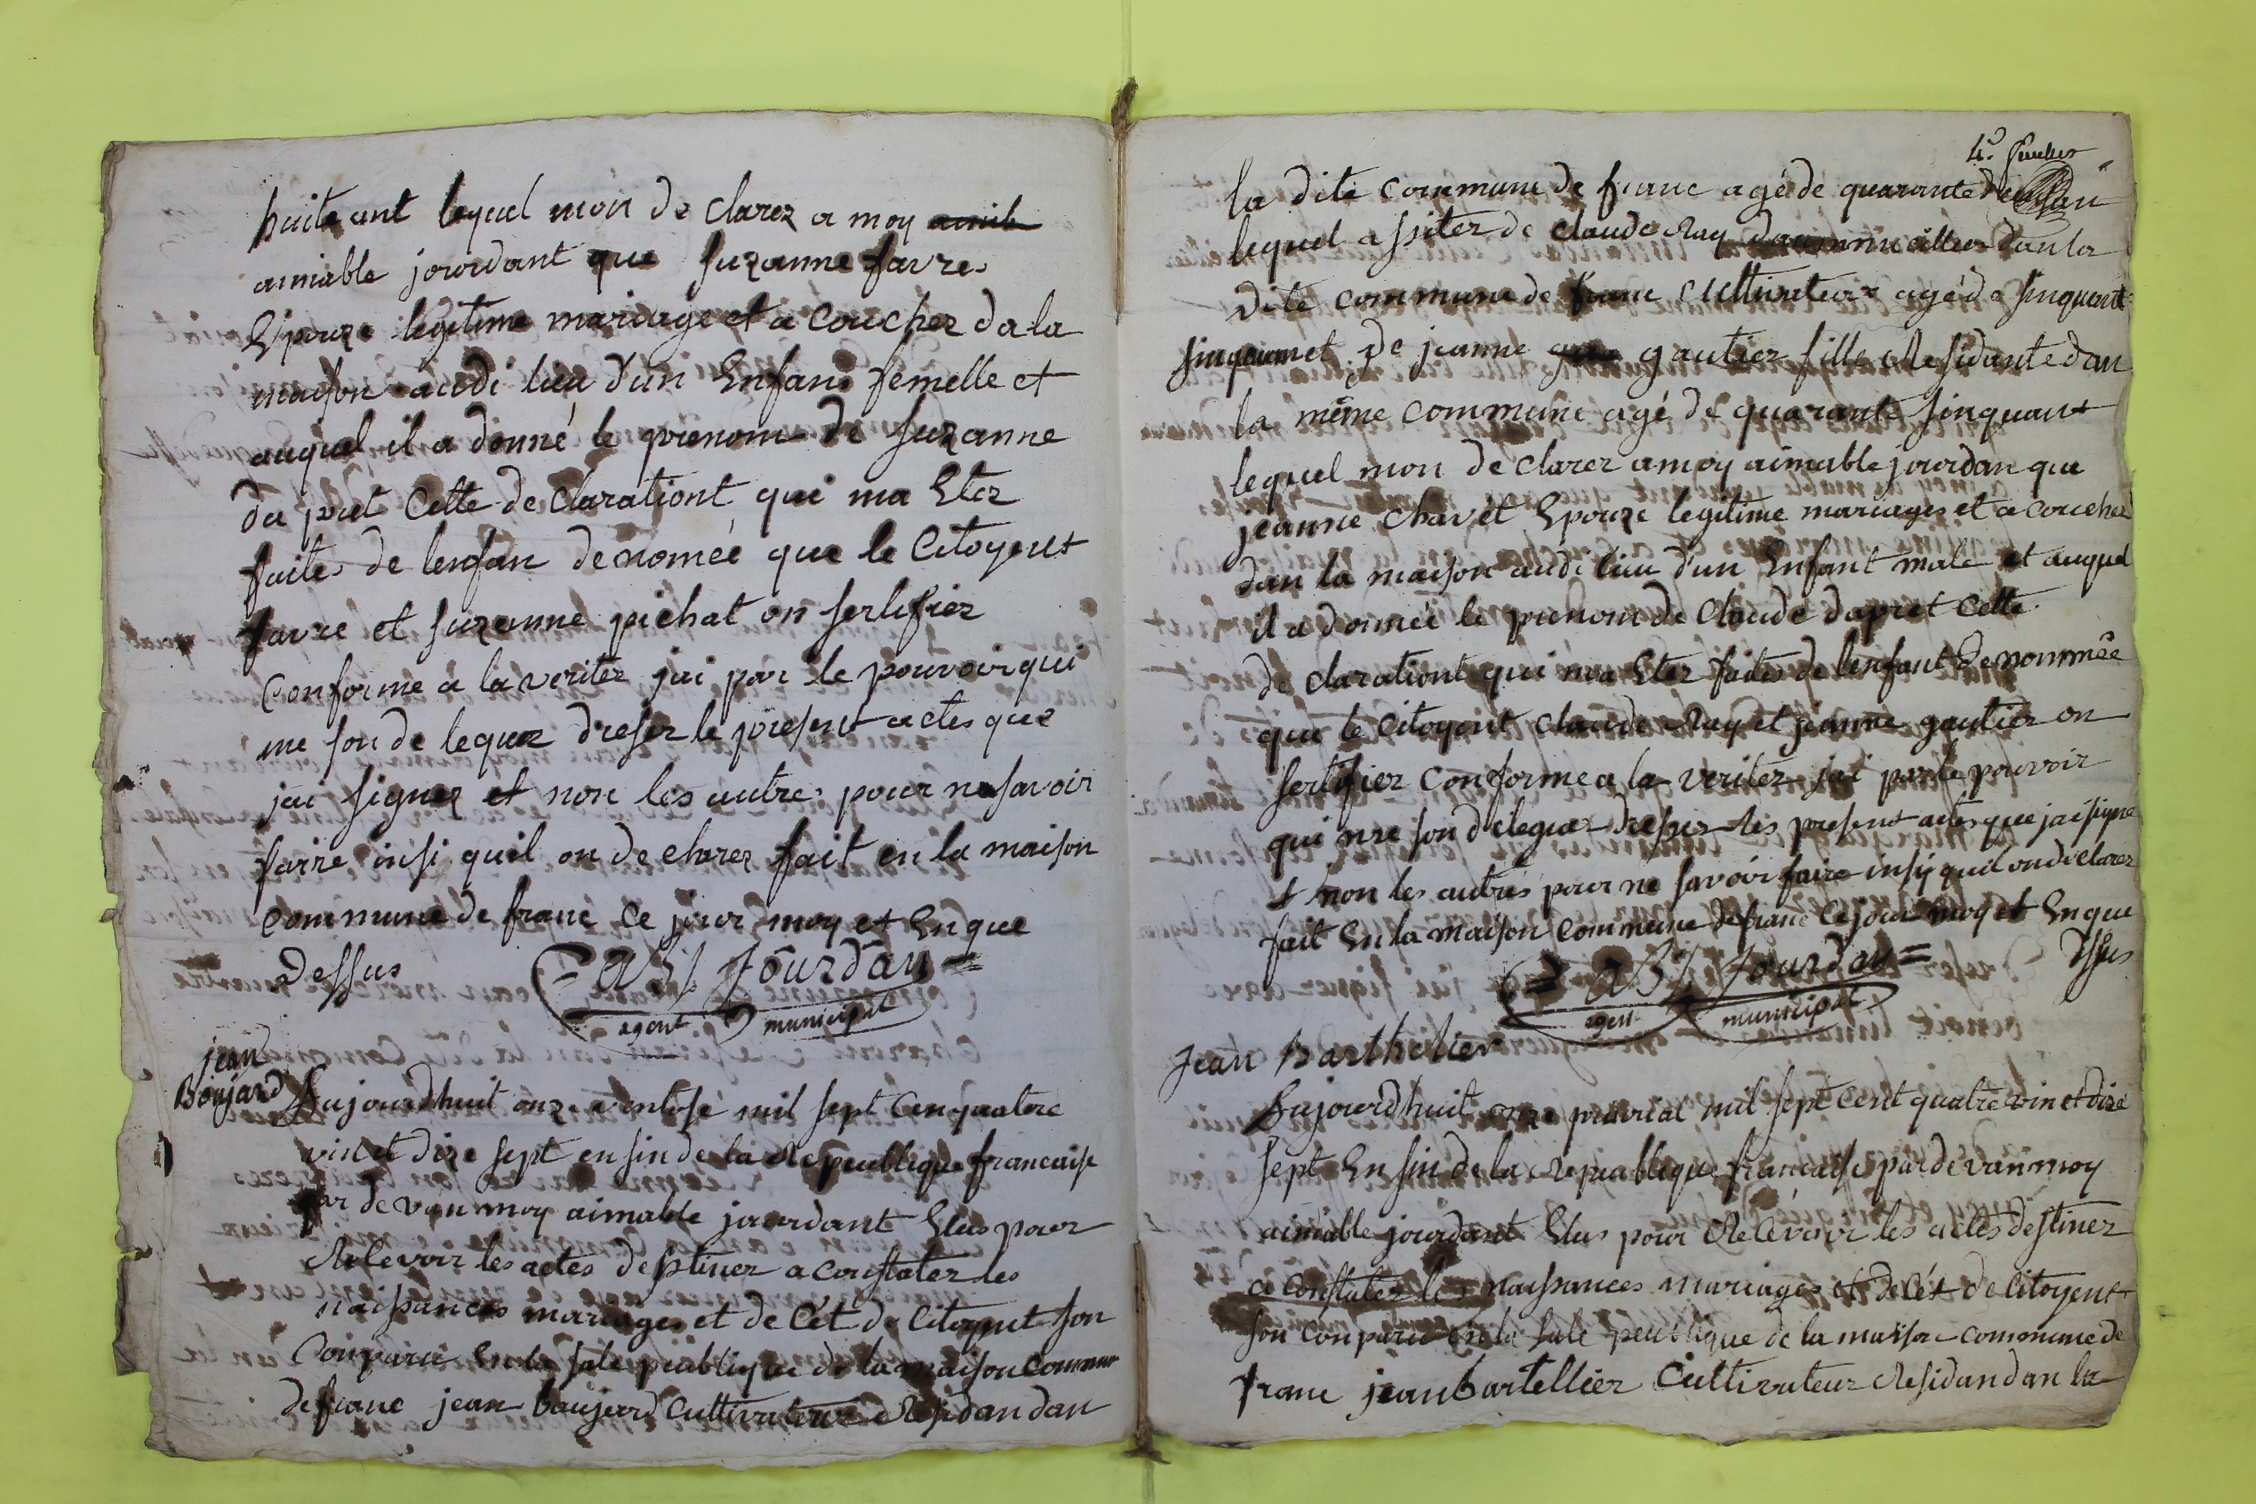 huite ant lequel mon de clarez a moy amib
aimable jourdant que suzanne favre
Epouze legitime mariage et a coucher da la
maison audi lieu d'un Enfan femelle et
auquel il a donné le prenom de suzanne
da pret Cette de clarationt qui ma Etez
faites de lenfan denomeé que le Citoyent
favre et suzanne pichat on sertifiez
Conforme a la veritez jai par le pouvoir qui
me son de leguez dreser le present actes que
jai signez et non les autres pour ne savoir
faire insi quil on de clarez fait en la maison
commune de franc ce jour moy et En que
Dessus
= ABL Jourdan =
agent municipal
jean
Boujard
Aujourdhuit onze ventose mil sept Cen quatere
vin et dize sept en sin de la Republique francaise
par de van moy aimable jourdant Elus pour
Relevoir les actes destinez a constater les
naissances mariages et de Cét de Citoyent son
Conparu En la sale publique de la maison Commune
de franc jean boujard Cultivateur Resdan dan
4e. feuillet
la dite commune de franc agé de quarante neuf an
lequel assitez de claude Ray dan la
dite commune de franc Cultivateur agé de sinquent
sinq an et De jeanne gautier fille Residante dan
la même commune agé de quarante sinq ant
lequel mon de clarez a moy aimable jourdan que
jeanne chavet Epouze legitime mariages et a couchez
dan la maison audi lieu d'un Enfant male et auquel
il a donneé le prenom de Claude dapret Cette
de clarationt qui ma Etez faites de lenfant Denommée
que le Citoyent claude Ray et jeanne gautier on
sertifier Conforme a la veritez jai par le pouvoir
qui me son deleguez dreser les present actes que jai signe
et non les autres pour ne savoir faire insy quil on declarez
fait En la maison commune de franc Ce jour moy et En que
Dsus
= ABL Jourdan =
agent municipal
Jean Barthelier
Aujourdhuit onze prairial mil sept Cent quatre vin et dize
sept En sin de la Republique francaise par de van moy
aimable jourdant Elus pour Relevoir les actes destinez
a Constater les naissances mariages et de Cét de Citoyent
son Conparu En la sale peublique de la maison commune de
franc jean bartellier Cultivateur Residan dan la